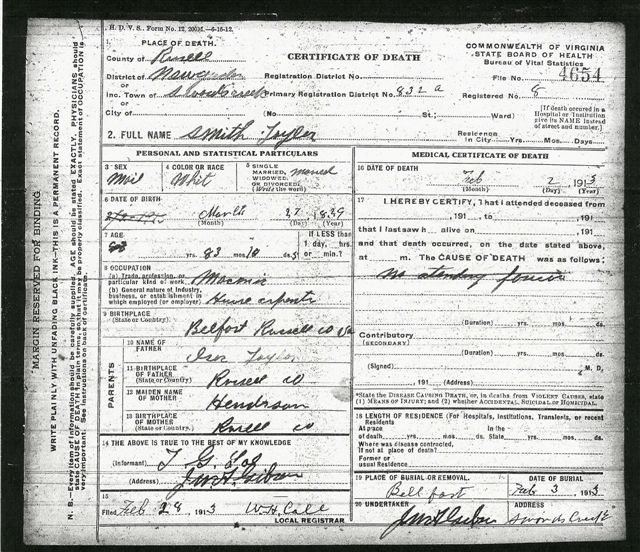 H. D. V. S. Form No. 12, 200M.—6-15-12.
PLACE OF DEATH.
County of Russell
District of New Garden
or
Inc. Town of Swords Creek
or
City of
CERTIFICATE OF DEATH
COMMONWEALTH OF VIRGINIA
STATE BOARD OF HEALTH
Bureau of Vital Statistics
Registration District No.
File No. 4654
Primary Registration District No. 832 a
Registered No. 8
(No. St.; Ward)
[If death occured in a
Hospital or Institution
give its NAME instead
of street and number.]
2. FULL NAME Smith Taylor
Residence
In City Yrs. Mos. Days
PERSONAL AND STATISTICAL PARTICULARS
3 SEX
4 COLOR OR RACE
Whit
5 SINGLE
MARRIED,
WIDOWED,
OR DIVORCED
(Write the word)
6 DATE OF BIRTH
March 27 1829
(Month) (Day) (Year)
7 AGE
83 yrs. 10 mos. ds.
If LESS than
1 day, hrs.
or min.?
8 OCCUPATION
(a) Trade, profession, or
particular kind of work
(b) General nature of industry,
business, or establishment in
which employed (or employer)
9 BIRTHPLACE
(State or Country)
Belfort Russell co Va
PARENTS
10 NAME OF
FATHER
Taylor
11 BIRTHPLACE
OF FATHER
(State or Country)
Rusell co
12 MAIDEN NAME
OF MOTHER
Henderson
13 BIRTHPLACE
OF MOTHER
(State or Country)
Rusell co
14 THE ABOVE IS TRUE TO THE BEST OF MY KNOWLEDGE
(Informant) T G
(Address)
15
Filed Feb 28 1913 W.H. Call
LOCAL REGISTRAR
MEDICAL CERTIFICATE OF DEATH
16 DATE OF DEATH
Feb 2 1913
(Month) (Day) (Year)
17 I HEREBY CERTIFY, That I attended deceased from
, 191 , to , 191
that I last saw h alive on , 191
and that death occurred, on the date stated above,
at m. The CAUSE OF DEATH was as follows:
No atending
(Duration) yrs. mos. ds.
Contributory
(SECONDARY)
(Duration) yrs. mos. ds.
(Signed) M. D.
, 191 (Address)
*State the DISEASE CAUSING DEATH, or, in deaths from VIOLENT CAUSES, state
(1) MEANS OF INJURY; and (2) whether ACCIDENTAL, SUICIDAL or HOMICIDAL.
18 LENGTH OF RESIDENCE (For Hospitals, Institutions, Transients, or recent
Residents)
At place
of death yrs. mos. ds. State yrs. mos. ds.
Where was disease contracted,
if not at place of death?
Former or
usual residence
19 PLACE OF BURIAL OR REMOVAL
Bellfast
DATE OF BURIAL
Feb 3 1913
20 UNDERTAKER
ADDRESS
Swords Creek
MARGIN RESERVED FOR BINDING
WRITE PLAINLY WITH UNFADING BLACK INK—THIS IS A PERMANENT RECORD.
N. B.—Every item of information should be carefully supplied. AGE should be stated EXACTLY. PHYSICIANS should
state CAUSE OF DEATH in plain terms, so that it may be properly classified. Exact statement of OCCUPATION is
very important. See instructions on back of certificate.